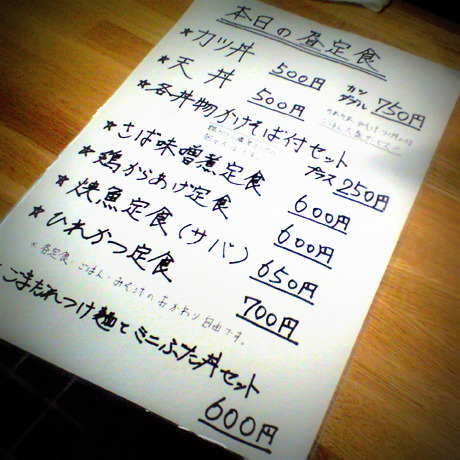 本日の昼定食
★カツ丼 500円 カツダブル 750円
★天丼 500円
★各丼物かけそば付セット プラス250円
★さば味噌煮定食 600円
★鶏からあげ定食 600円
★焼魚定食(サバ) 650円
★ひれかつ定食 700円
※各定食、ごはん・みそ汁のおかわり自由です。
ごまだれつけ麺とミニぶた丼セット
600円